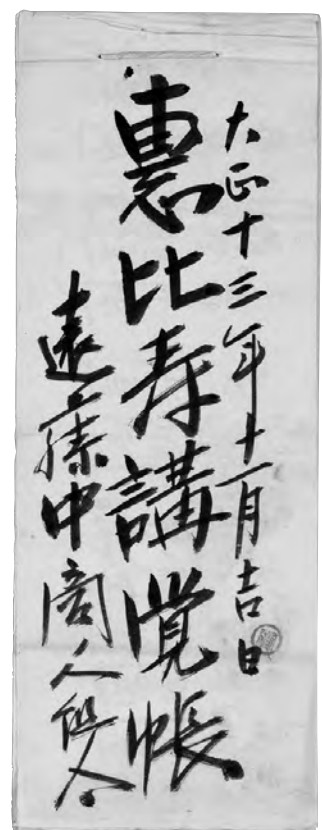 大正十三年十一月吉日
恵比寿講覚帳
遠藤中商人組合